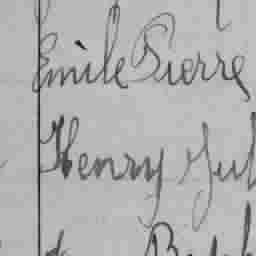 Emile Pierre
Henry Jul